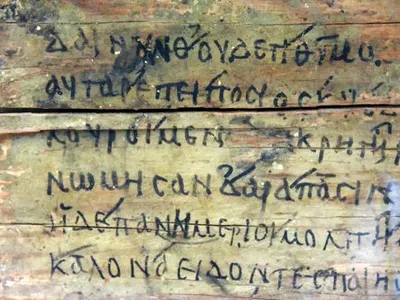 ΔΑΙΝΥΝΘΟΥΔΕΤΙΘΥΜΟ
ΑΥΤΑΡΕΠΕΙΠΟϹΙΟϹ
ΚΟΥΡΟΙΜΕΝ ΚΡΗΤΗ
ΝΩΜΗϹΑΝΔΑΡΑΠΑϹΙΝ
ΟΙΔΕΠΑΝΗΜΕΡΙΟΙΜΟΛΠΗ
ΚΑΛΟΝΑΕΙΔΟΝΤΕϹΠΑΙΗΟ